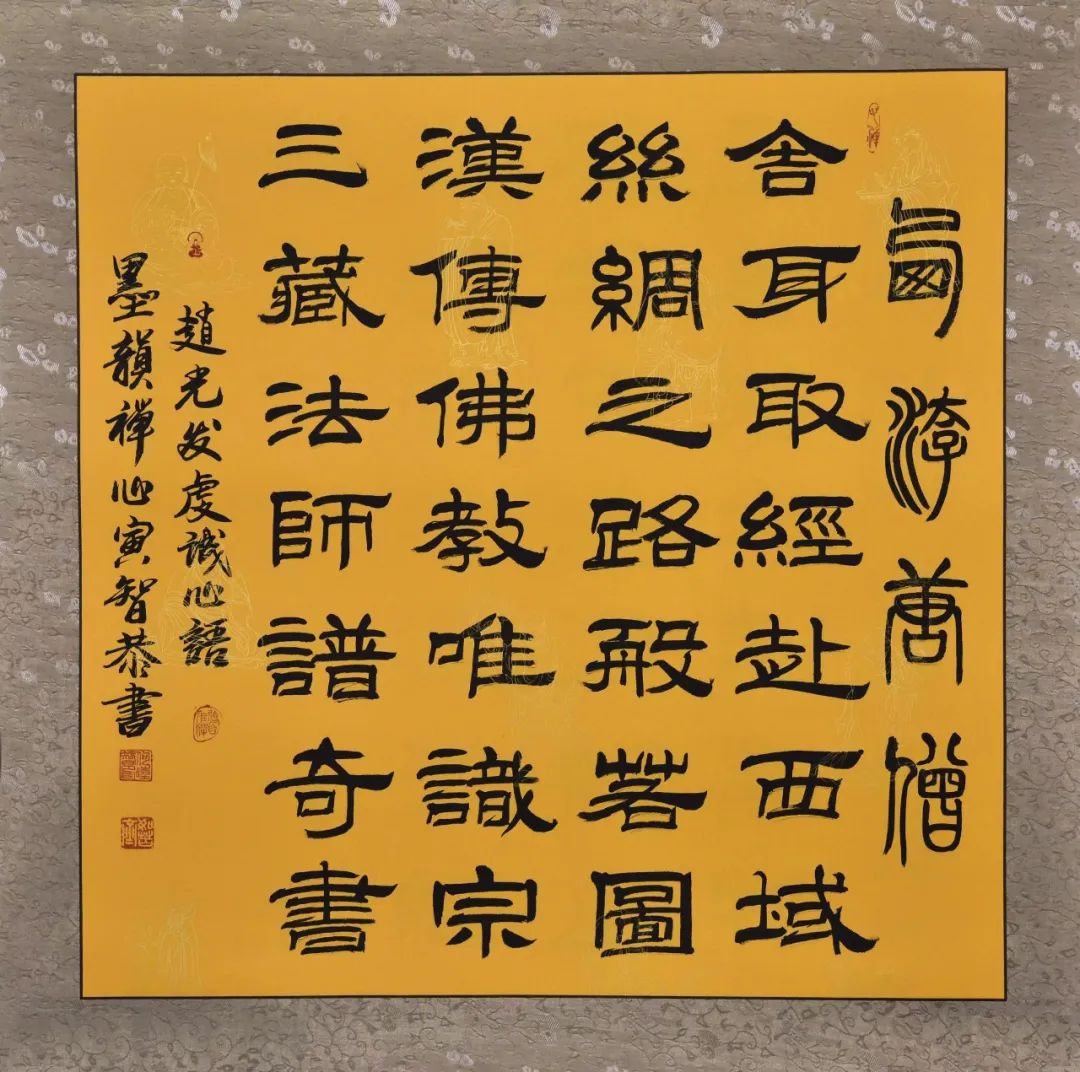 西游唐僧
舍耳取經赴西域
絲綢之路般若圖
漢傳佛教唯識宗
三藏法師譜奇書
趙光发虔誠心語
墨韻禪心寅智恭書